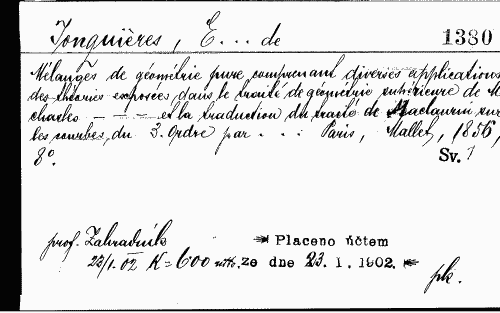 Jonquières, E... de
1380
Mélanges de géométrie pure comprenant diverses applications
des théories exposées dans le traité de géométrie supérieure de M
Chasles — et la traduction du traité de Maclaurin sur
les courbes, du 3. ordre par . . . Paris, Mallet, 1856,
8°. Sv. 1
prof. Zahradník Placeno účtem
22/1.02 K=600 ze dne 23. 1. 1902.
pk.